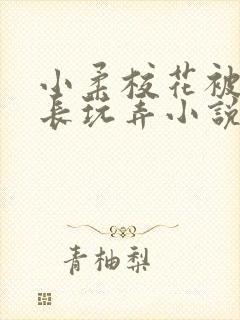 小柔校花被
长玩弄小説
青柚梨